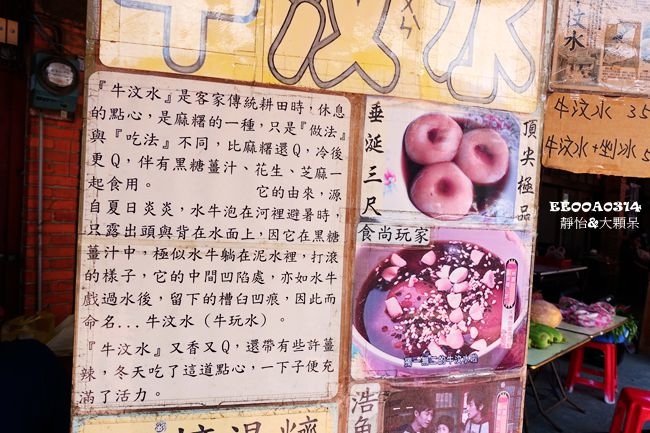 牛汶水
ㄨㄣ
『牛汶水』是客家傳統耕田時，休息
的點心，是麻糬的一種，只是『做法』
與『吃法』不同，比麻糬還Q，冷後
更Q，伴有黑糖薑汁、花生、芝麻一
起食用。　　　　　　　它的由來，源
自夏日炎炎，水牛泡在河裡避暑時，
只露出頭與背在水面上，因它在黑糖
薑汁中，極似水牛躺在泥水裡，打滾
的樣子，它的中間凹陷處，亦如水牛
戲過水後，留下的槽臼凹痕，因此而
命名...牛汶水（牛玩水）。
『牛汶水』又香又Q，還帶有些許薑
辣，冬天吃了這道點心，一下子便充
滿了活力。
垂涎三尺
頂尖極品
食尚玩家
獨一無二的牛汶水喔
浩角
汶水
牛汶水 35
牛汶水+剉冰 5
EE00A0314
靜怡&大顆呆